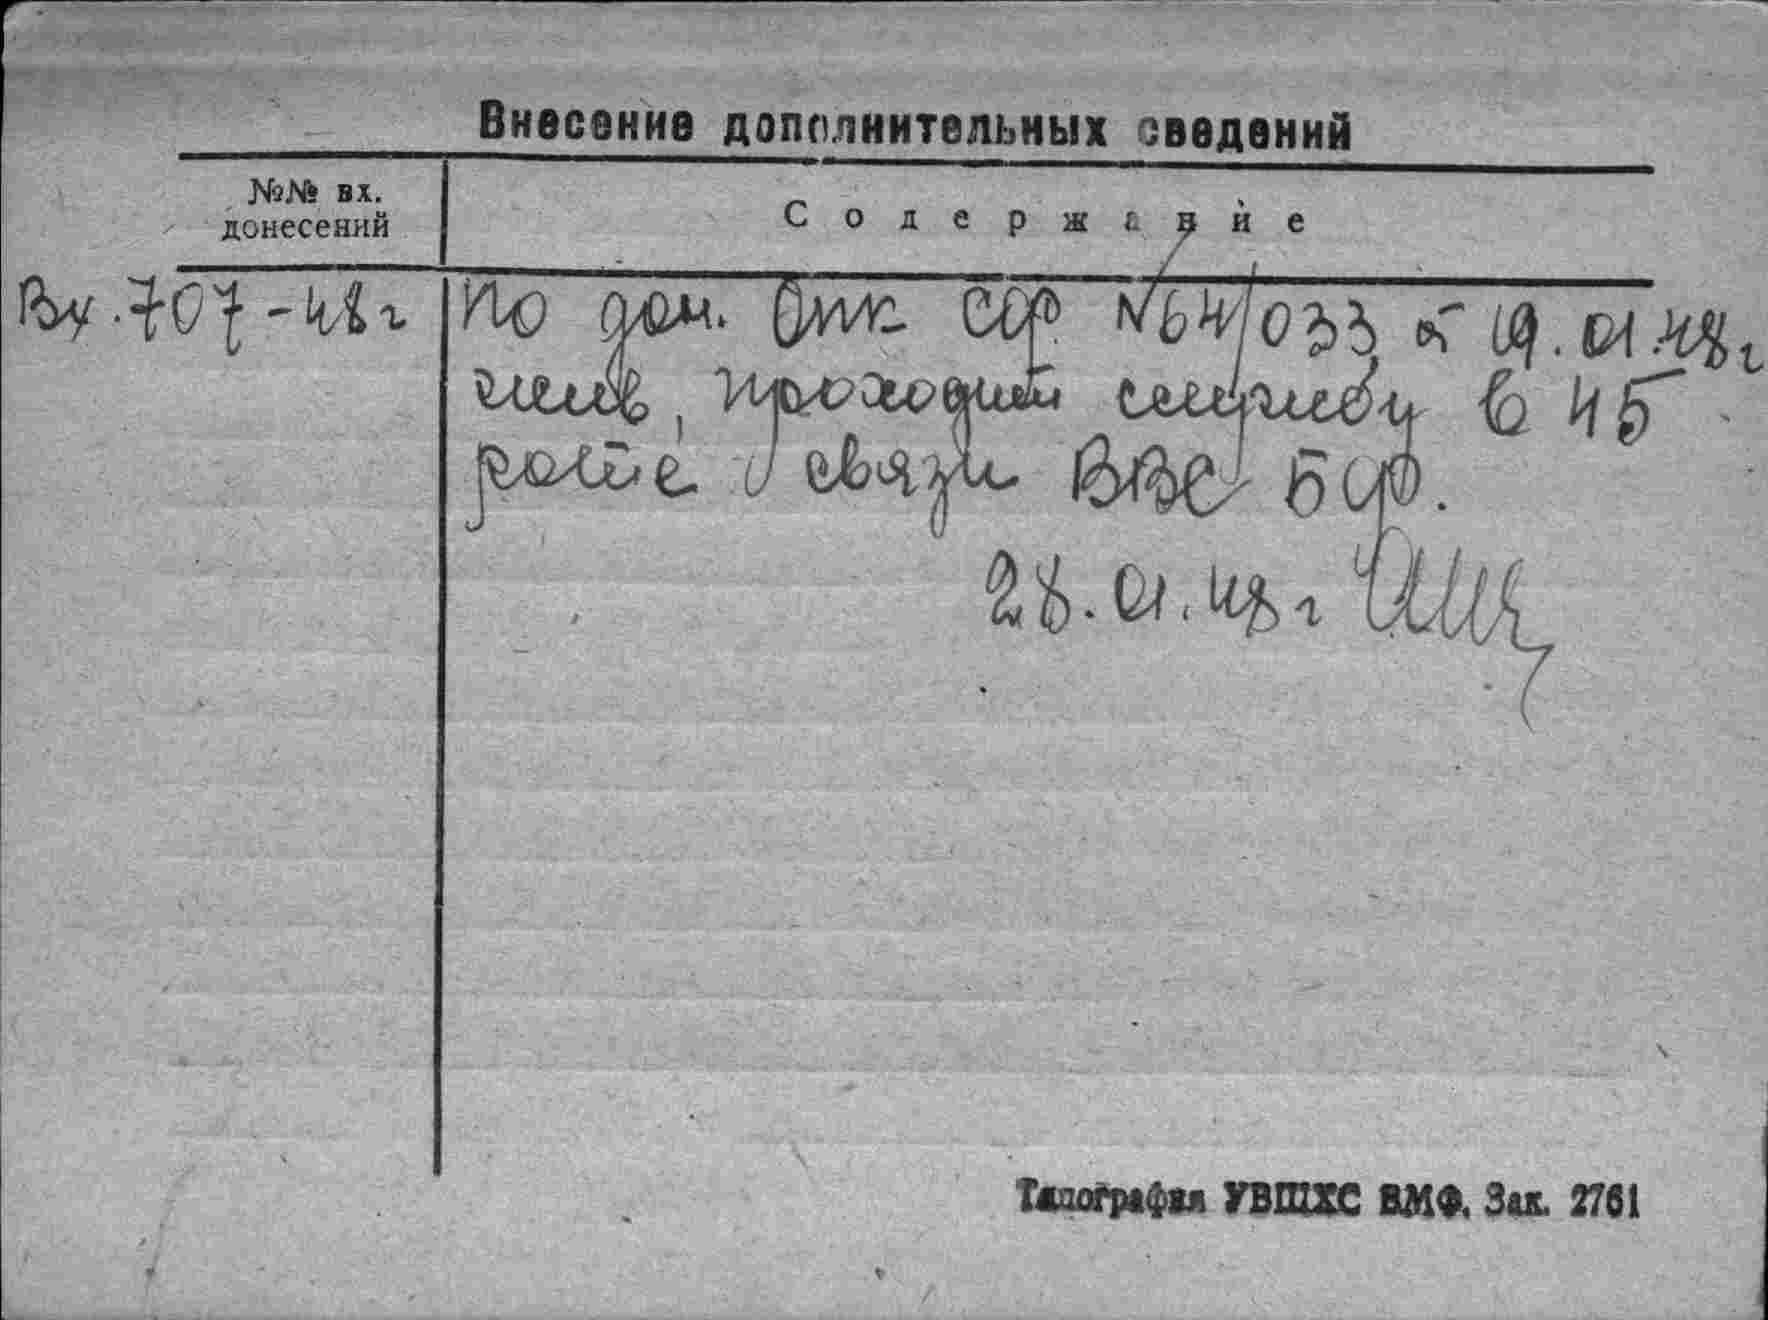 Внесение дополнительных сведений
№№ вх. донесений
Содержание
Вх. 707-48г
По дон. Опк СФ №64/033 от 19.01.48г
жив, проходит службу в 45
роте связи ВВС БФ.
28.01.48г
Типография УВШХС ВМФ. Зак. 2761